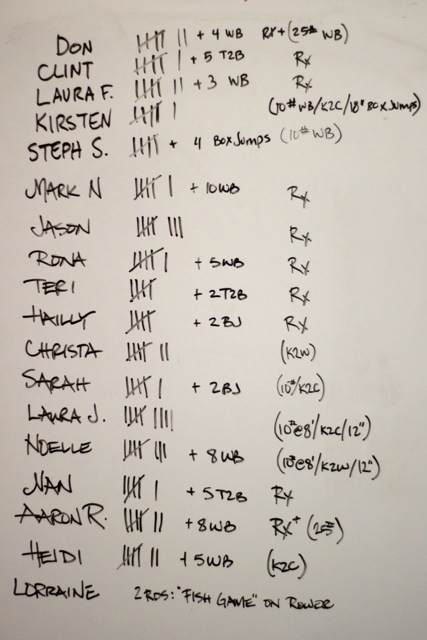 DON 𝍸 II + 4 WB RX+ (25# WB)
CLINT 𝍸 I + 5 T2B RX
LAURA F. 𝍸 II + 3 WB RX
KIRSTEN 𝍸 I (10# WB/K2C/18" BOX JUMPS)
STEPH S. 𝍸 + 4 BOX JUMPS (10# WB)
MARK N 𝍸 I + 10WB RX
JASON 𝍸 III RX
RONA 𝍸 I + 5WB RX
TERI 𝍸 + 2T2B RX
HAILLY 𝍸 + 2BJ RX
CHRISTA 𝍸 II (K2W)
SARAH 𝍸 I + 2BJ (10#/K2C)
LAURA J. 𝍸 IIII (10#@8'/K2C/12")
NOELLE 𝍸 III + 8WB (10#@8'/K2W/12")
NAN 𝍸 I + 5T2B RX
AARON R. 𝍸 II + 8WB RX+ (25#)
HEIDI 𝍸 II + 5WB (K2C)
LORRAINE 2 RDS: "FISH GAME" ON ROWER